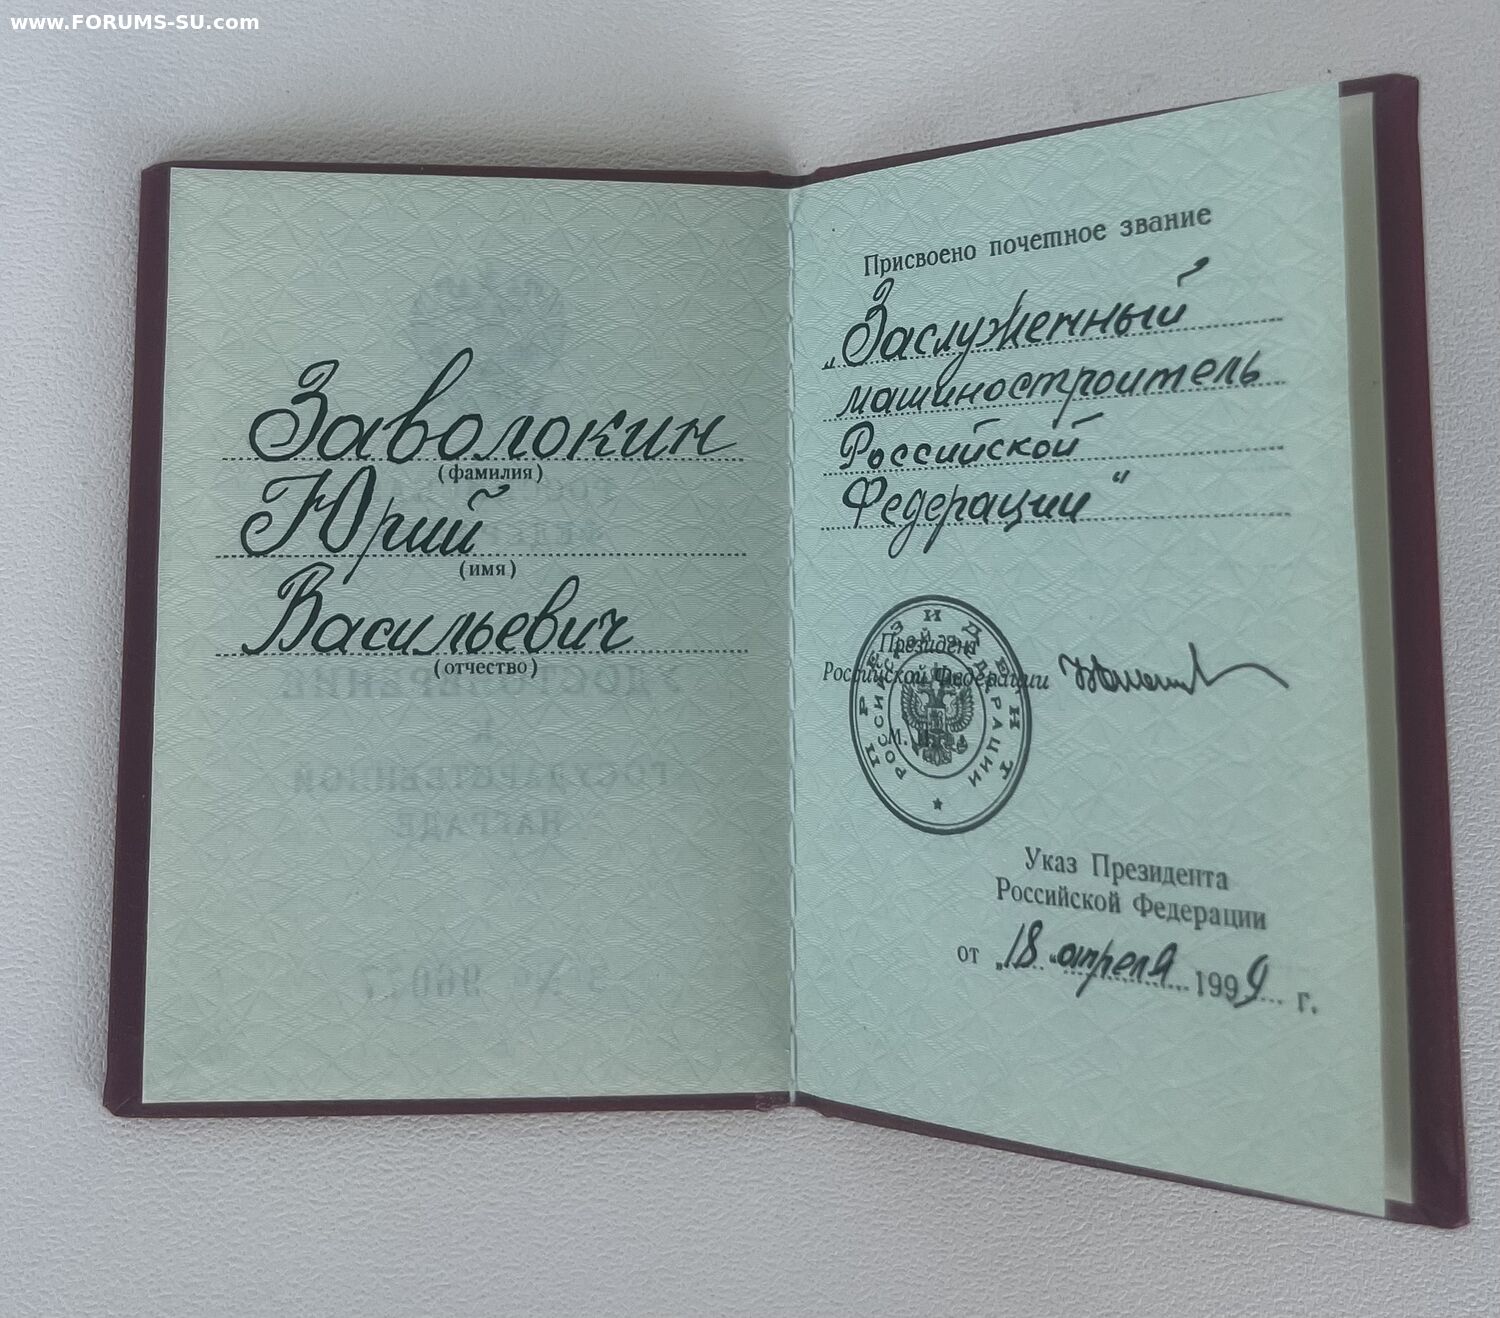 www.FORUMS-SU.com
Заволокин
(фамилия)
Юрий
(имя)
Васильевич
(отчество)
Присвоено почетное звание
„Заслуженный
машиностроитель
Российской
Федерации“
Президент
Российской Федерации
М. П.
ПРЕЗИДЕНТ
РОССИЙСКОЙ ФЕДЕРАЦИИ
Указ Президента
Российской Федерации
от „18“ апреля 1999 г.
УДОСТОВЕРЕНИЕ
К
ГОСУДАРСТВЕННОЙ
НАГРАДЕ